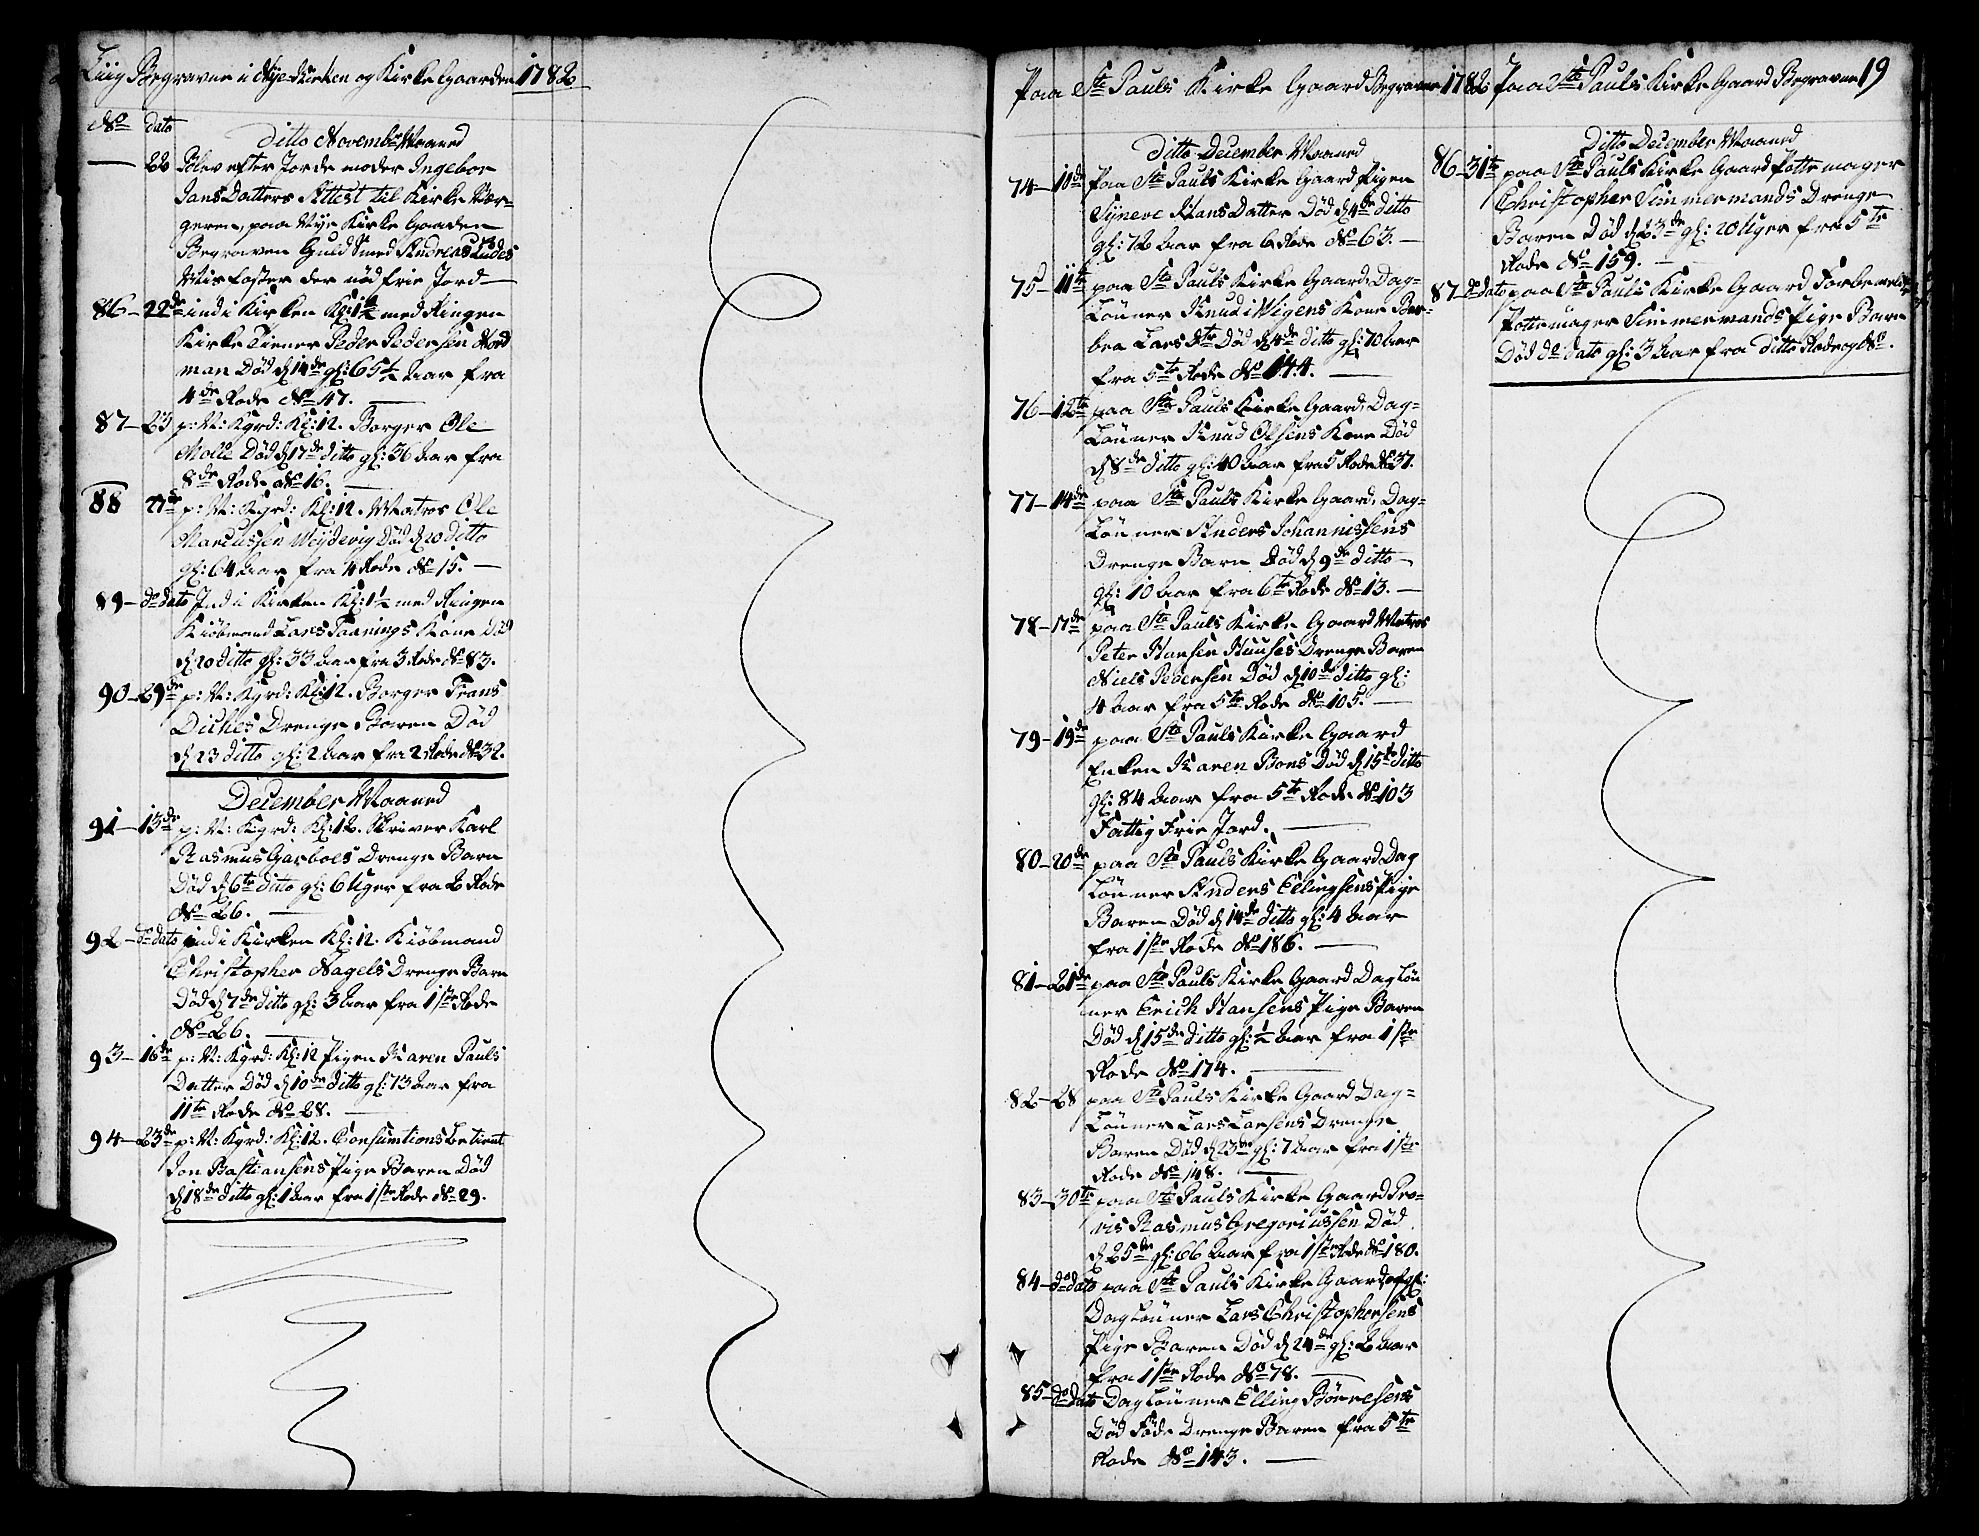 Liig Begraven i Nye Kirken og Kirke Gaarden 1782
No dato
Ditto Novembr Maaned
— 22 Blev efter Jorde moder Ingebor
Jans Datters Attest til Kirke Vær-
geren, paa Nye Kirke Gaarden
Begraven Guld Smed Andreas
Misfoster der nød frie Jord —
86 — 22de ind i Kirken Kl: 1½ med Ringen
Kirke Tiener Peder Pedersen Nord
man Død d 14de gl: 65½ Aar fra
4de Rode No 47. —
87 — 23 p: N: Kgrd: Kl: 12. Borger Ole
Molle Død d 17de ditto gl: 36 Aar fra
8de Rode No 16. —
88 27de p: N: Kgrd: Kl: 12. Matros Ole
Marcussen Død d 20 ditto
gl: 64 Aar fra 4 Rode No 15. —
89 — do dato Ind i Kirken Kl: 1½ med Ringen
Kiøbmand Lars Taanings Kone Død
d 20 ditto gl: 33 Aar fra 3 Rode No 83.
90 — 29de p: N: Kgrd: Kl: 12. Borger Frans
Diches Drenge Baren Død
d 23 ditto gl: 2 Aar fra 2 Rode No 32.
December Maaned
91 — 13de p: N: Kgrd: Kl: 12. Skriver Karl
Rasmus Garboes Drenge Barn
Død d 6te ditto gl: 6 Uger fra 2 Rode
No 26. —
92 — do dato ind i Kirken Kl: 12. Kiøbmand
Christopher Nagels Drenge Barn
Død d 7de ditto gl: 3 Aar fra 1ste Rode
No 26. —
93 — 16de p: N: Kgrd: Kl: 12 Pigen Karen Pauls
Datter Død d 10de ditto gl: 73 Aar fra
11te Rode No 28. —
94 — 23de p: N: Kgrd: Kl: 12. Consumtions Betient
Jon Bastiansens Pige Baren Død
d 18de ditto gl: 1 Aar fra 1ste Rode No 29.
Paa Ste Pauls Kirke Gaard Begraven 1782
Ditto December Maaned
74 — 10de Paa Ste Pauls Kirke Gaard Pigen
Synneve Hans Datter Død d 4de ditto
gl: 72 Aar fra 6 Rode No 63. —
75 — 11te paa Ste Pauls Kirke Gaard, Dag-
Lønner Knud Wigens Kone Bar-
bra Lars Dtr Død d 4de ditto gl: 70 Aar
fra 5te Rode No 144. —
76 — 12te paa Ste Pauls Kirke Gaard, Dag-
Lønner Knud Olsens Kone Død
d 8de ditto gl: 40 Aar fra 5 Rode No 37.
77 — 14de paa Ste Pauls Kirke Gaard, Dag-
Lønner Anders Johannissens
Drenge Barn Død d 9de ditto
gl: 10 Aar fra 6te Rode No 13. —
78 — 17de paa Ste Pauls Kirke Gaard Matros
Peter Hansen Huuses Drenge Baren
Niels Pedersen Død d 10de ditto gl:
4 Aar fra 5te Rode No 105. —
79 — 19de paa Ste Pauls Kirke Gaard
Enken Karen Bons Død d 15te ditto
gl: 84 Aar fra 5te Rode No 103
Fattig Frie Jord. —
80 — 20de paa Ste Pauls Kirke Gaard Dag
Lønner Anders Ellingsens Pige
Baren Død d 14de ditto gl: 4 Aar
fra 1ste Rode No 186. —
81 — 21de paa Ste Pauls Kirke Gaard Dag Løn
ner Erich Hansens Pige Baren
Død d 15de ditto gl: ½ Aar fra 1ste
Rode No 174. —
82 — 28 paa Ste Pauls Kirke Gaard Dag-
Lønner Lars Larsens Drenge
Baren Død d 23de gl: 7 Aar fra 1ste
Rode No 148. —
83 — 30te paa Ste Pauls Kirke Gaard Pro-
vis Rasmus Gregoriussen Død
d 25de gl: 66 Aar fra 1ste Rode No 180.
84 — do dato paa Ste Pauls Kirke Gaard
Dag Lønner Lars Christophersens
Pige Baren Død d 24de gl: 2 Aar
fra 1ste Rode No 78. —
85 — do dato Dag Lønner Elling Børresens
Død Føde Drenge Baren fra 5te
Rode No 143. —
Paa Ste Pauls Kirke Gaard Begraven 19
Ditto December Maaned
86 — 31te paa Ste Pauls Kirke Gaard Potte mager
Christopher Simmermands Drenge
Baren Død d 23de gl: 20 Uger fra 5te
Rode No 159. —
87 — do dato paa Ste Pauls Kirke Gaard Forbemeldte
Potte mager Simmermands Pige Barn
Død do dato gl: 3 Aar fra ditto Rode og No.